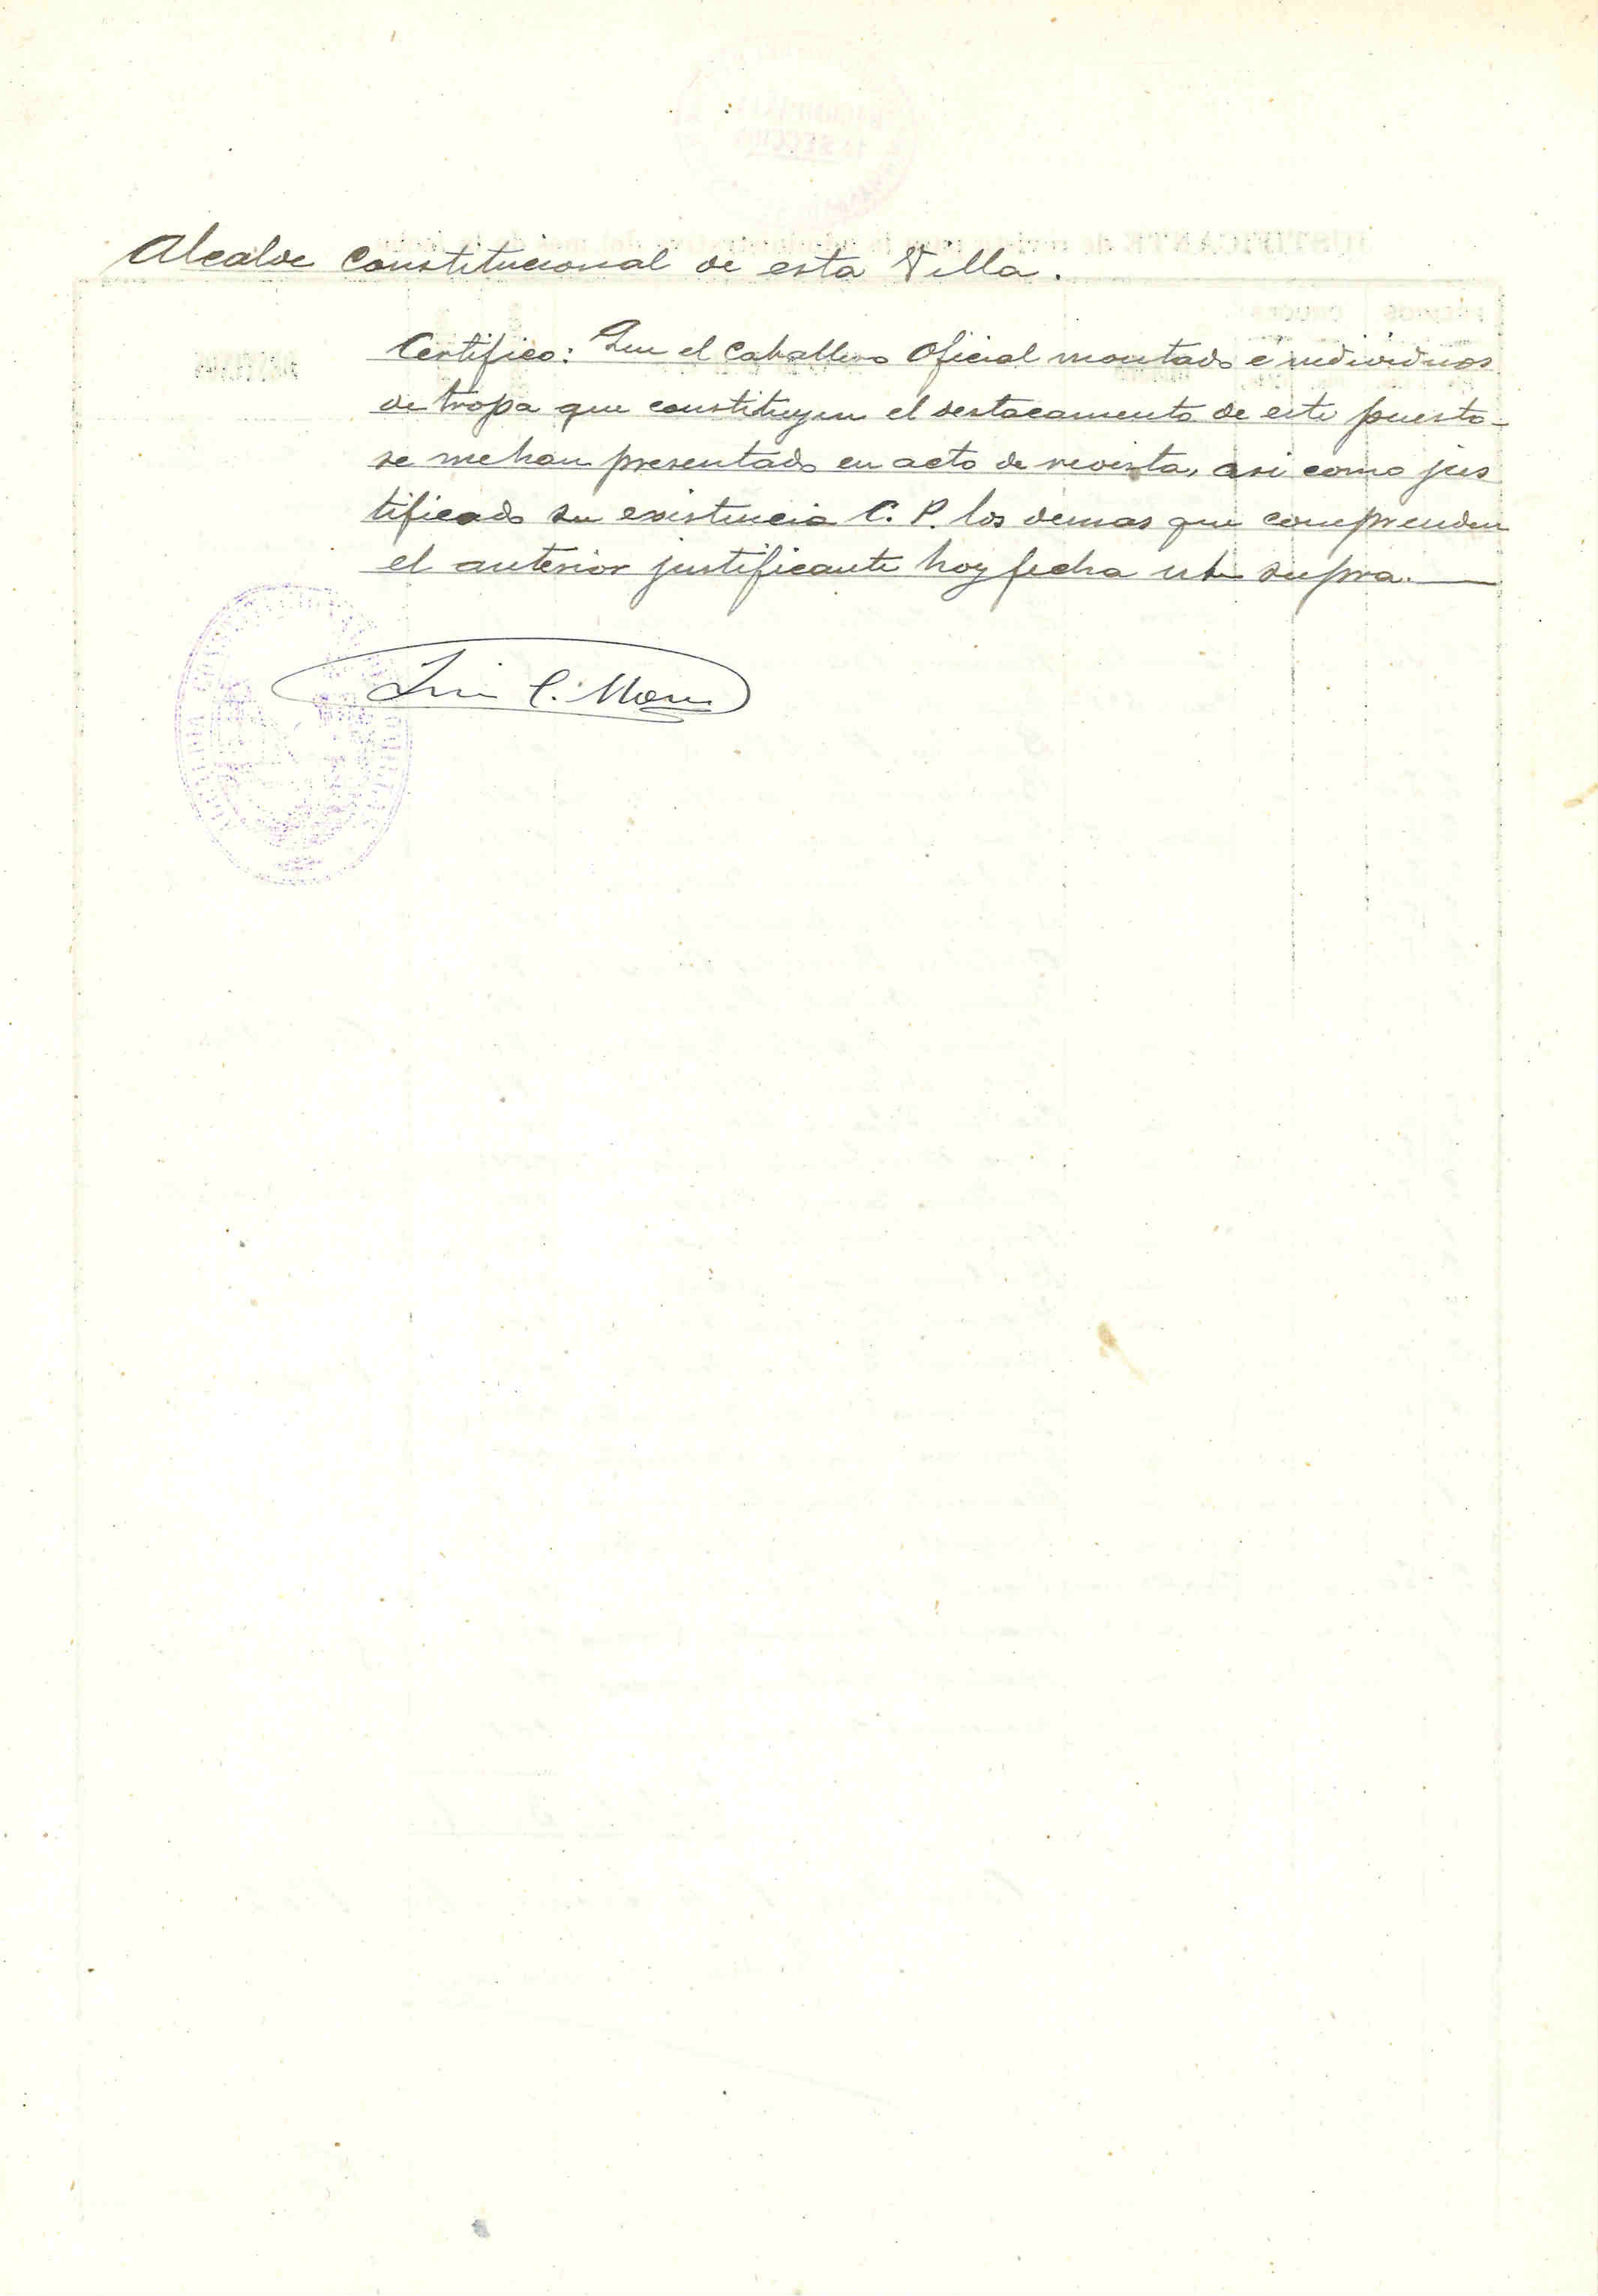 Alcalde Constitucional de esta Villa.
Certifico: Que el Caballero Oficial montado e individuos
de tropa que constituyen el destacamento de este puesto
se me han presentado en acto de revista, asi como jus
tificado su existencia C. P. los demas que comprenden
el anterior justificante hoy fecha ut supra.
C.